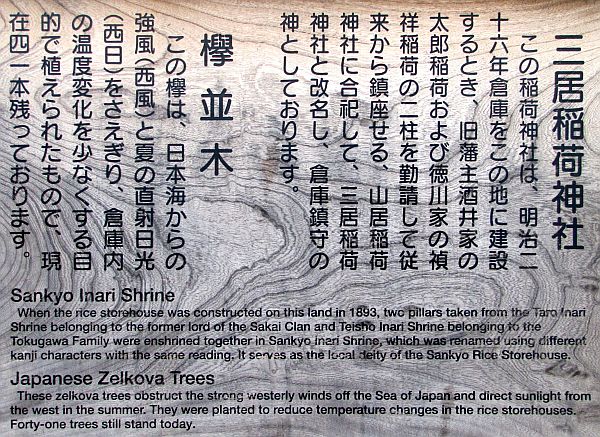 三居稲荷神社
この稲荷神社は、明治二
十六年倉庫をこの地に建設
するとき、旧藩主酒井家の
太郎稲荷および徳川家の禎
祥稲荷の二柱を勤請して従
来から鎮座せる、山居稲荷
神社に合祀して、三居稲荷
神社と改名し、倉庫鎮守の
神としております。
欅並木
この欅は、日本海からの
強風(西風)と夏の直射日光
(西日)をさえぎり、倉庫内
の温度変化を少なくする目
的で植えられたもので、現
在四一本残っております。
Sankyo Inari Shrine
When the rice storehouse was constructed on this land in 1893, two pillars taken from the Taro Inari
Shrine belonging to the former lord of the Sakai Clan and Teisho Inari Shrine belonging to the
Tokugawa Family were enshrined together in Sankyo Inari Shrine, which was renamed using different
kanji characters with the same reading. It serves as the local deity of the Sankyo Rice Storehouse.
Japanese Zelkova Trees
These zelkova trees obstruct the strong westerly winds off the Sea of Japan and direct sunlight from
the west in the summer. They were planted to reduce temperature changes in the rice storehouses.
Forty-one trees still stand today.